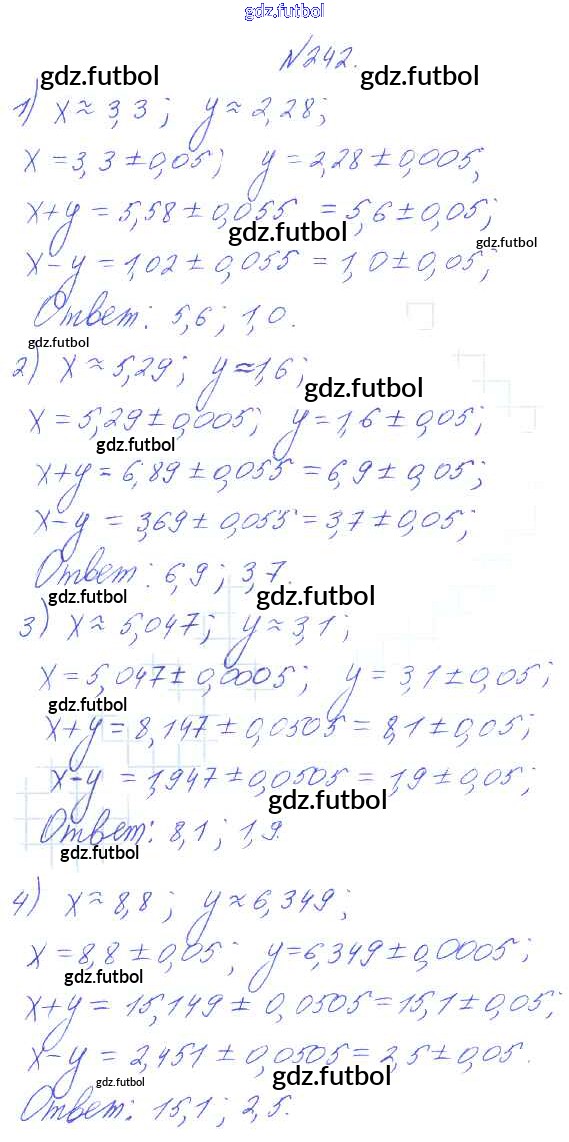 gdz.futbol
№242.
gdz.futbol gdz.futbol
1) x ≈ 3,3; y ≈ 2,28;
x = 3,3 ± 0,05; y = 2,28 ± 0,005;
x+y = 5,58 ± 0,055 = 5,6 ± 0,05;
gdz.futbol
gdz.futbol
x-y = 1,02 ± 0,055 = 1,0 ± 0,05;
Ответ: 5,6; 1,0.
gdz.futbol
2) x ≈ 5,29; y ≈ 1,6;
gdz.futbol
x = 5,29 ± 0,005; y = 1,6 ± 0,05;
gdz.futbol
x+y = 6,89 ± 0,055 = 6,9 ± 0,05;
x-y = 3,69 ± 0,055 = 3,7 ± 0,05;
Ответ: 6,9; 3,7.
gdz.futbol gdz.futbol
3) x ≈ 5,047; y ≈ 3,1;
x = 5,047 ± 0,0005; y = 3,1 ± 0,05;
gdz.futbol
x+y = 8,147 ± 0,0505 = 8,1 ± 0,05;
x-y = 1,947 ± 0,0505 = 1,9 ± 0,05;
gdz.futbol
Ответ: 8,1; 1,9.
gdz.futbol
4) x ≈ 8,8; y ≈ 6,349;
x = 8,8 ± 0,05; y = 6,349 ± 0,0005;
gdz.futbol
x+y = 15,149 ± 0,0505 = 15,1 ± 0,05;
x-y = 2,451 ± 0,0505 = 2,5 ± 0,05.
gdz.futbol gdz.futbol
Ответ: 15,1; 2,5.